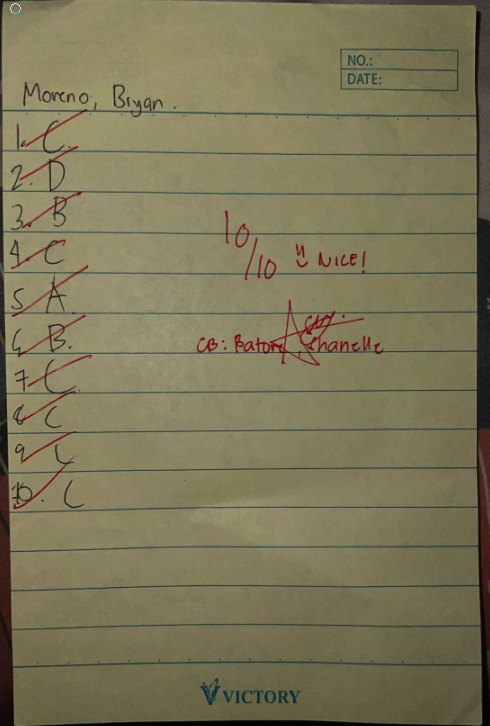 NO.:
DATE:
Moreno, Bryan.
1. C.
2. D
3. B
4. C
5. A.
6. B.
7. C.
8. C
9. C
10. C
10/10 NICE!
CB: Batore, Shanelle
VICTORY